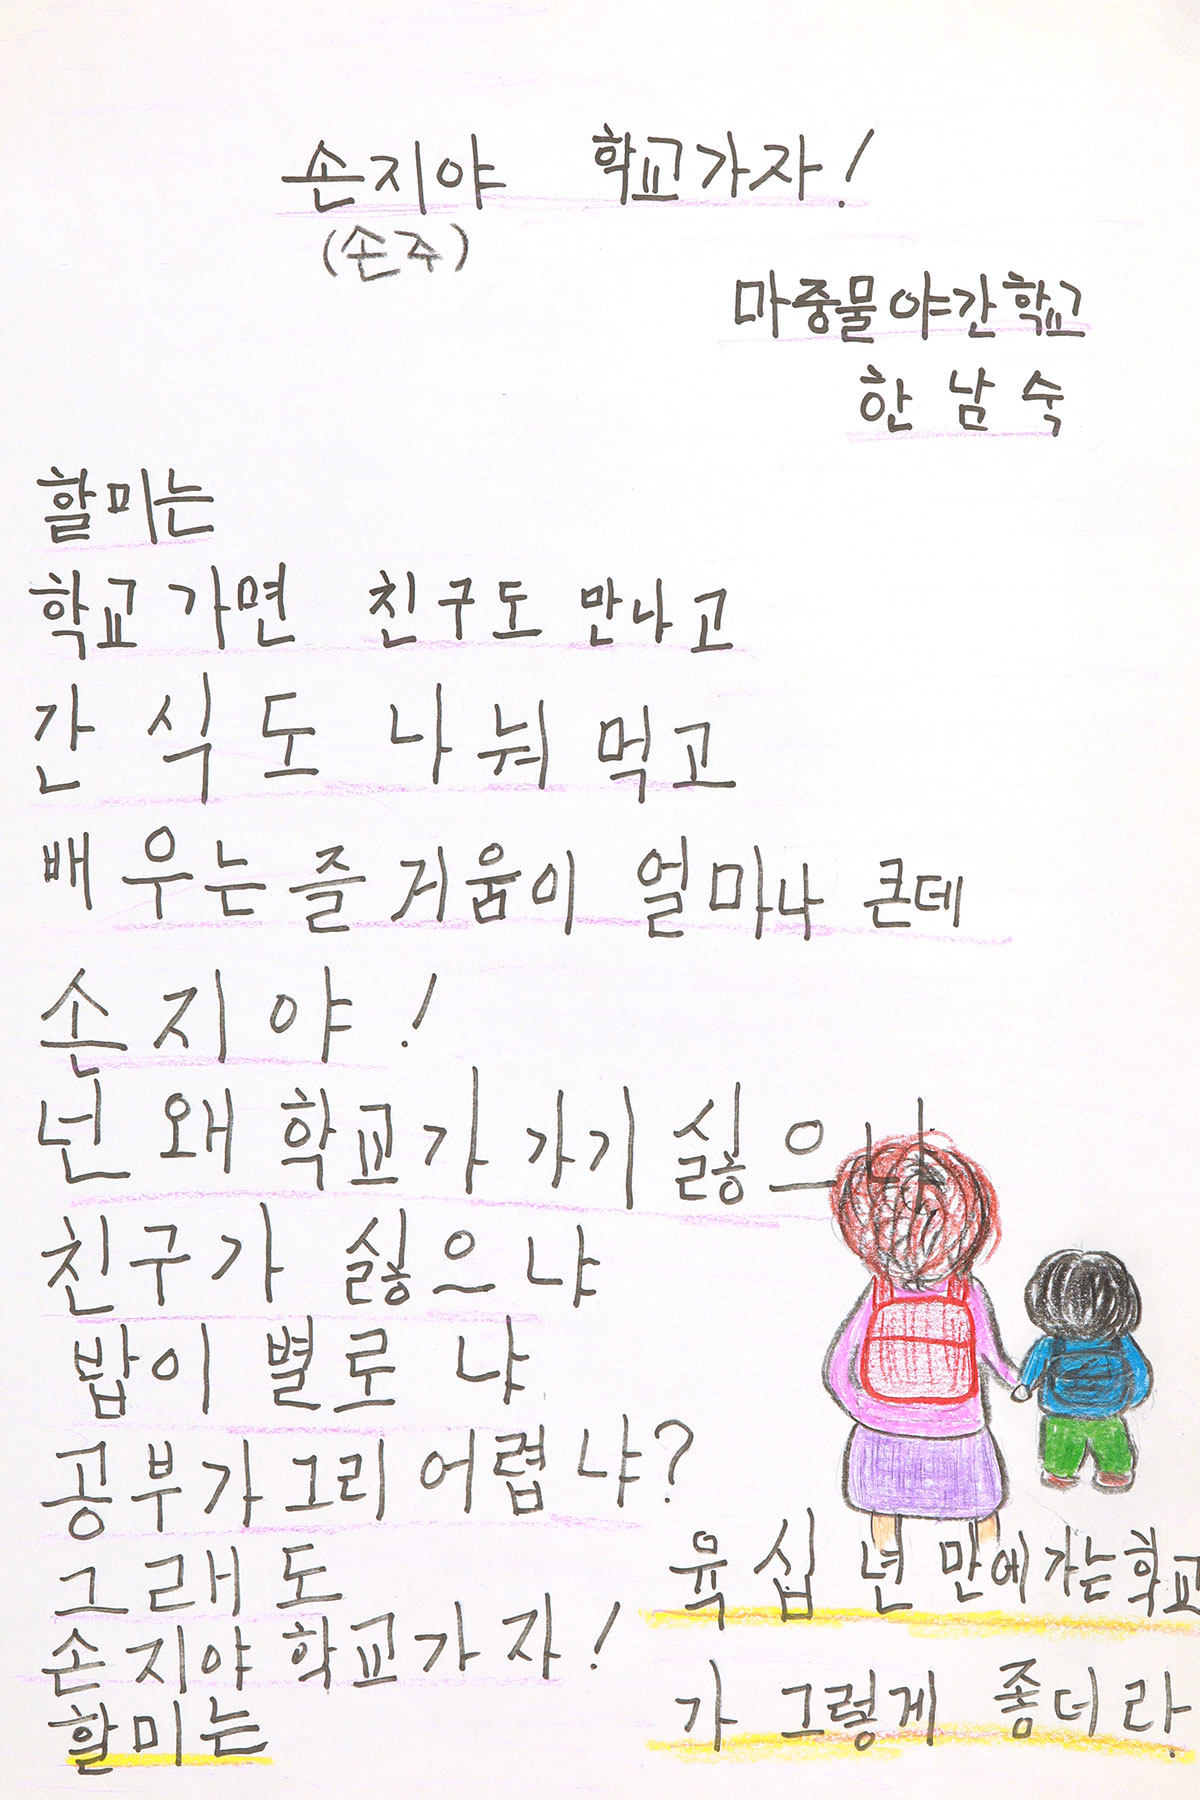 손지야 학교가자!
(손주)
마중물야간학교
한남숙
할미는
학교 가면 친구도 만나고
간식도 나눠 먹고
배우는 즐거움이 얼마나 큰데
손지야!
넌 왜 학교가 가기 싫으냐
친구가 싫으냐
밥이 별로냐
공부가 그리 어렵냐?
그래도
손지야 학교가자!
할미는
육십 년 만에 가는 학교
가 그렇게 좋더라.